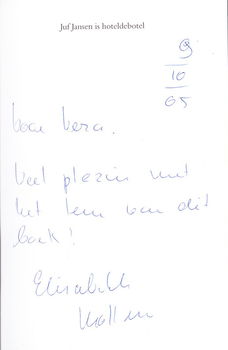 Juf Jansen is hoteldebotel
9
10
05
Voor Vera.
Veel plezier met
het lezen van dit
boek!
Elisabeth
Mollema